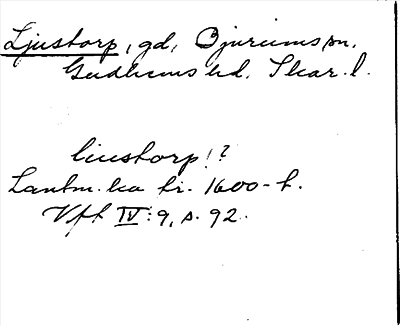 Ljustorp, gd, Bjurums sn,
Gudhems hd, Skar. l.
liustorp!?
Lantm. ka fr. 1600-t.
Vft IV: 9, s. 92.